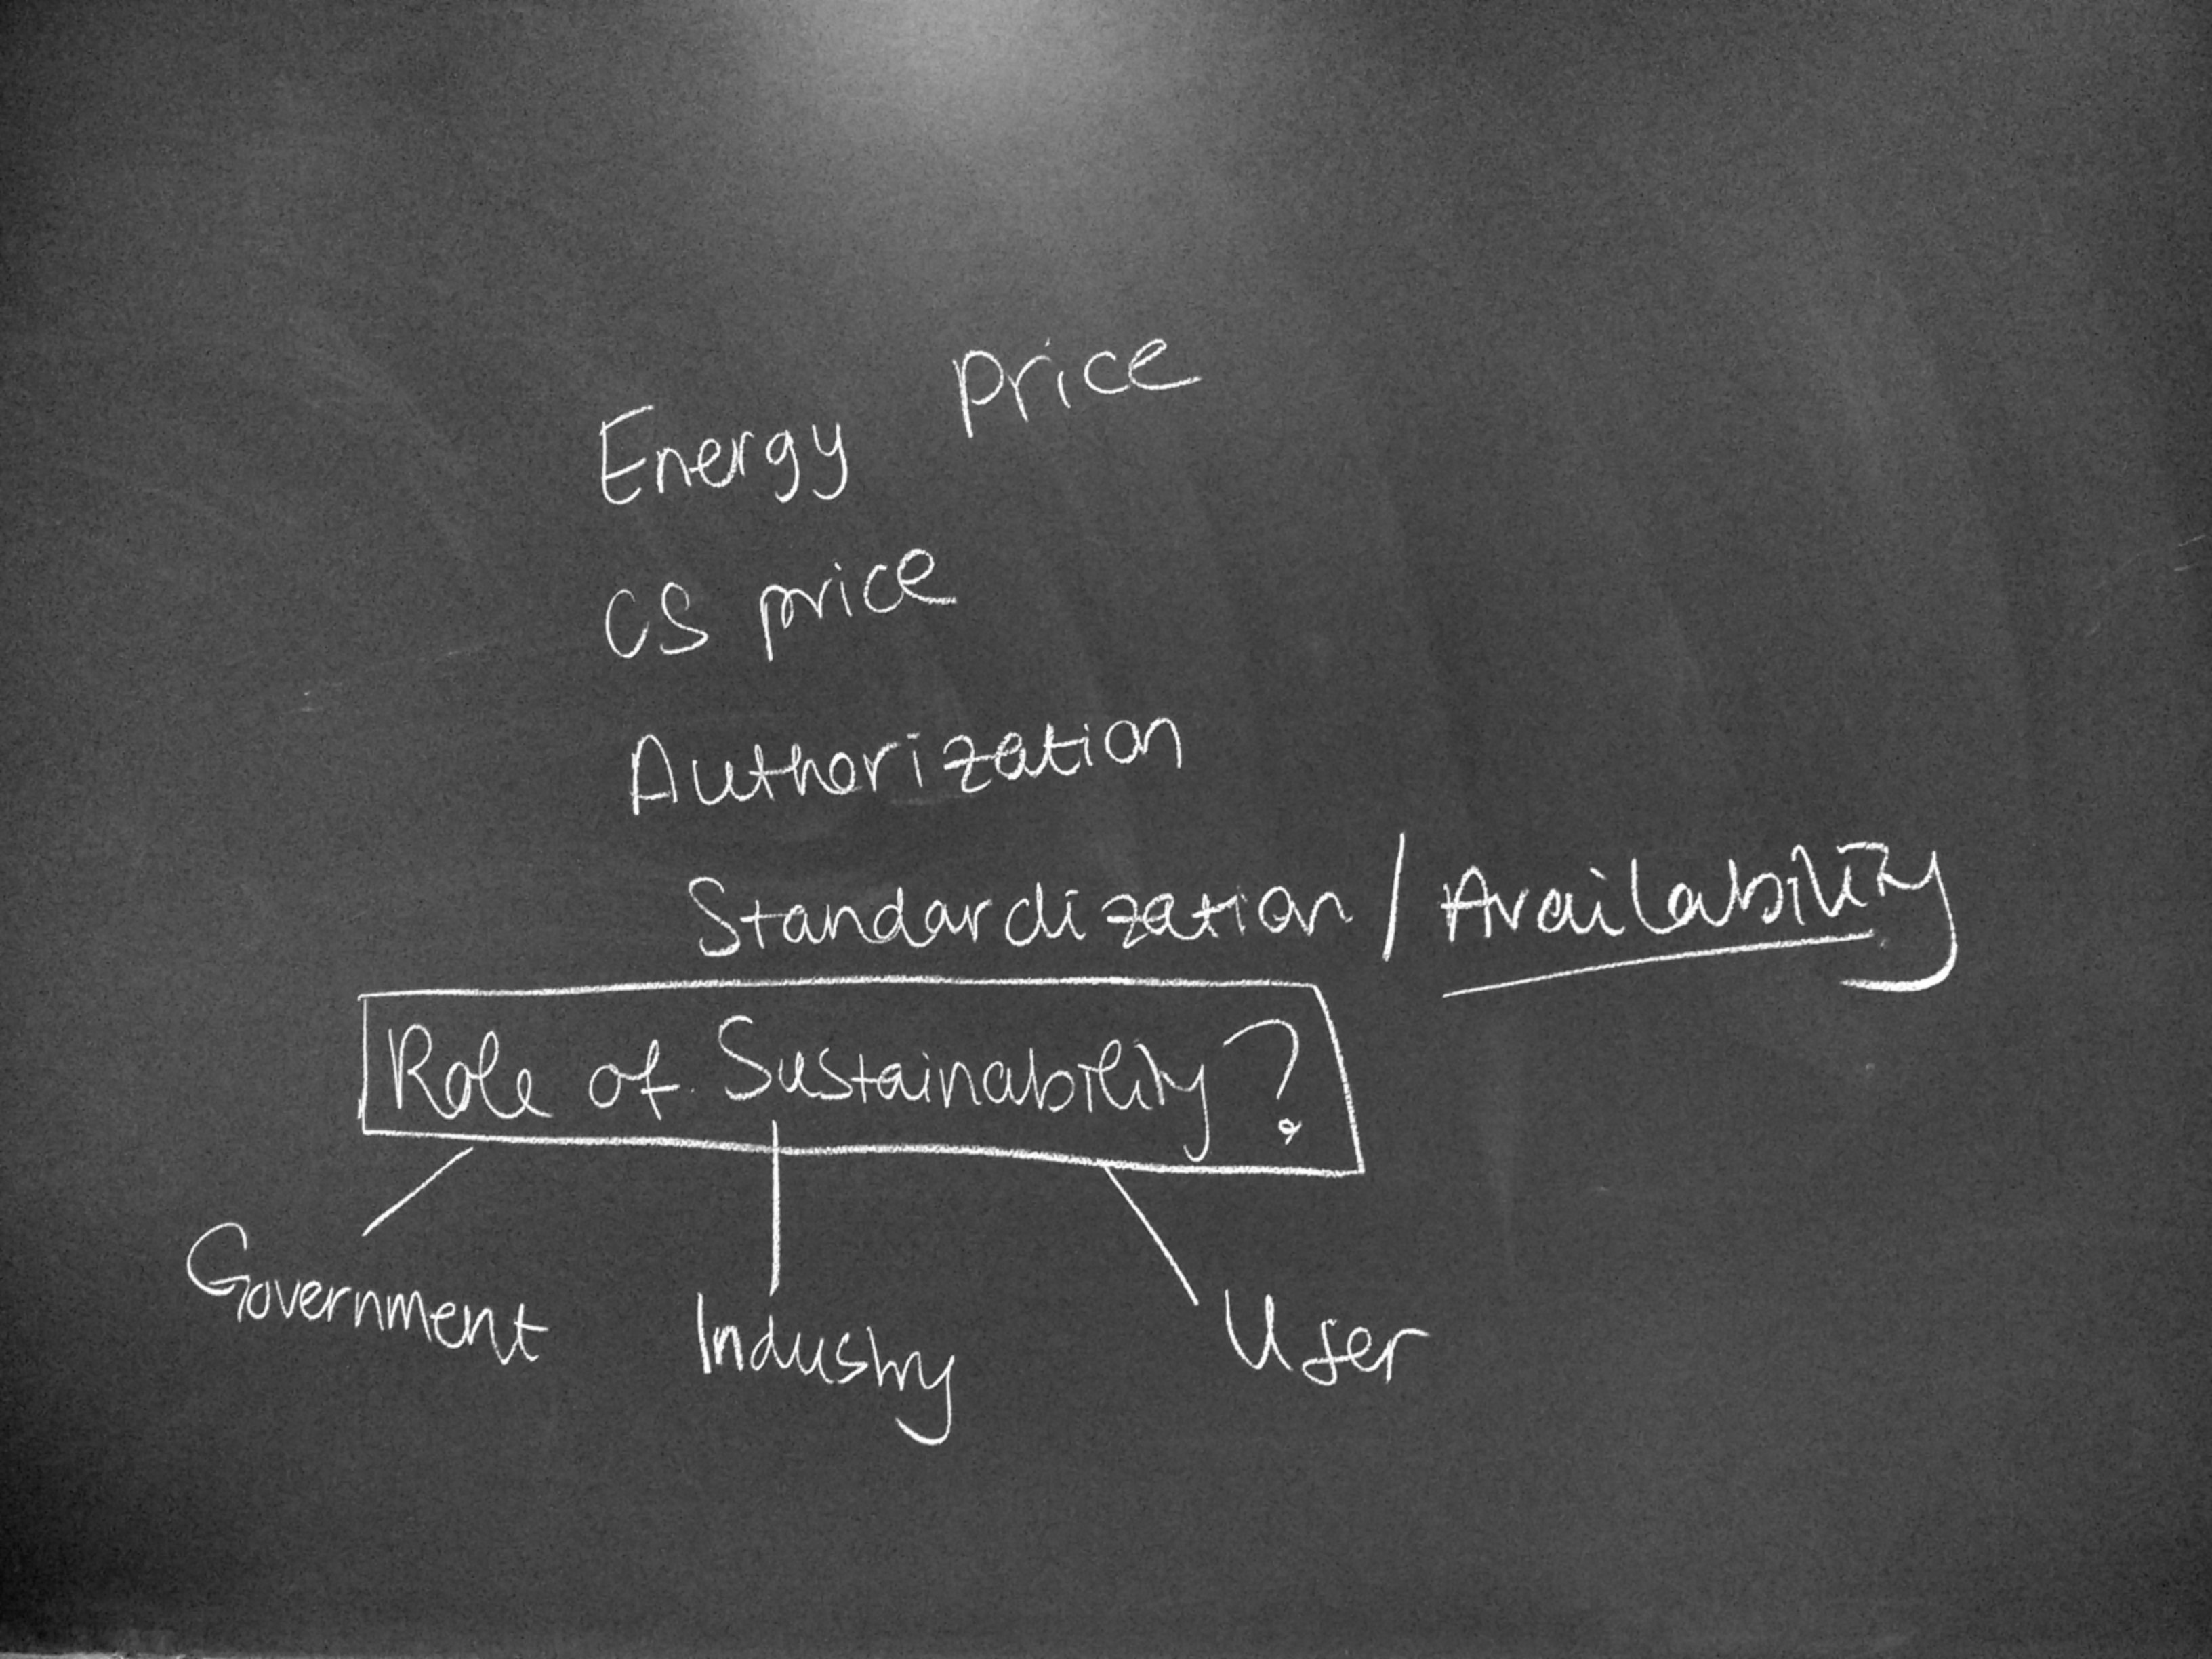 Energy Price
CS price
Authorization
Standardization / Availability
Role of Sustainability?
Government Industry User